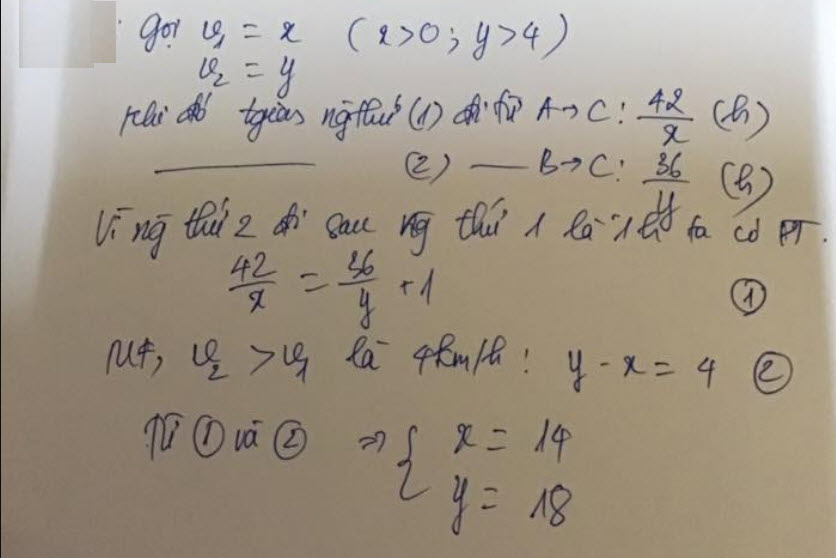 Gọi v₁ = x (x>0; y>4)
v₂ = y
Khi đó tgian ng thứ (1) đi từ A→C: 42/x (h)
——— (2) — B→C: 36/y (h)
Vì ng thứ 2 đi sau ng thứ 1 là 1h ta có PT.
42/x = 36/y + 1 ①
Mt, v₂ > v₁ là 4km/h: y - x = 4 ②
Từ ① và ② => { x = 14
y = 18